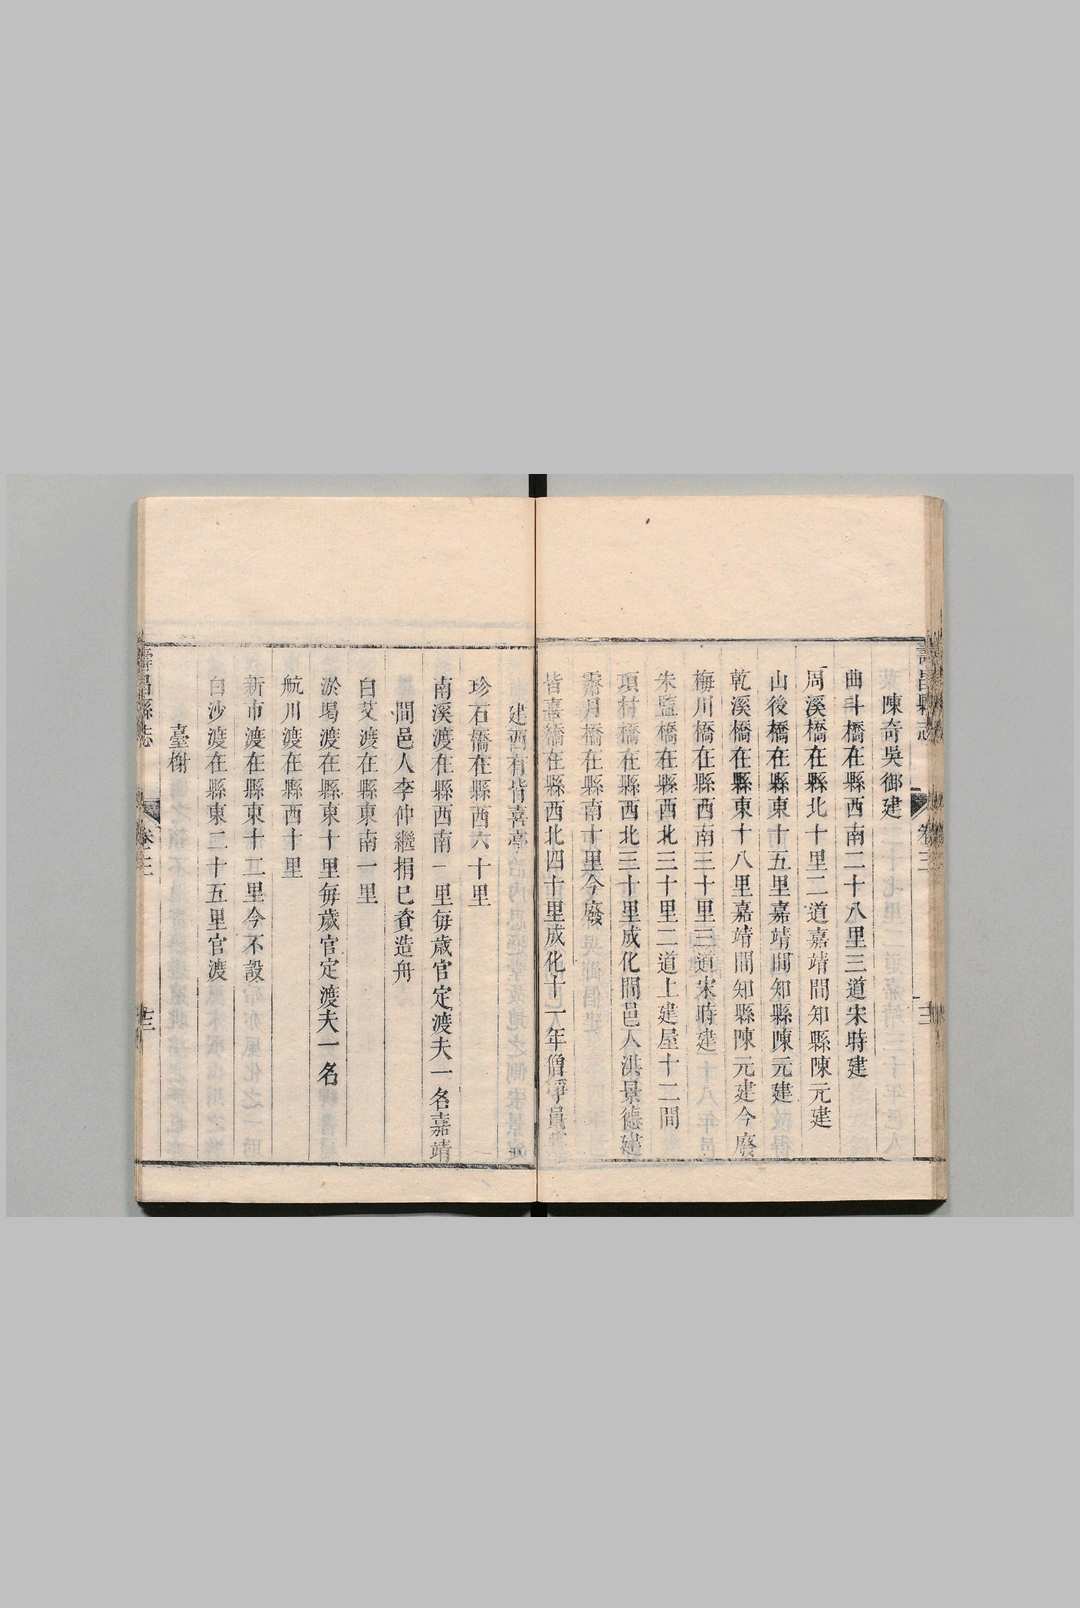 壽昌縣志
卷三
陳奇吳御建
曲斗橋在縣西南二十八里三道宋時建
周溪橋在縣北十里二道嘉靖間知縣陳元建
山後橋在縣東十五里嘉靖間知縣陳元建
乾溪橋在縣東十八里嘉靖間知縣陳元建今廢
梅川橋在縣西南三十里三道宋時建
朱監橋在縣西北三十里二道上建屋十二間
項村橋在縣西北三十里成化間邑人洪景德建
霽月橋在縣南十里今廢
皆喜橋在縣西北四十里成化十一年僧淨員
建西有皆喜亭
珍石橋在縣西六十里
南溪渡在縣西南一里每歲官定渡夫一名嘉靖
間邑人李仲繼捐己資造舟
白艾渡在縣東南一里
淤堨渡在縣東十里每歲官定渡夫一名
航川渡在縣西十里
新市渡在縣東十二里今不設
白沙渡在縣東二十五里官渡
臺榭
壽昌縣志
卷三